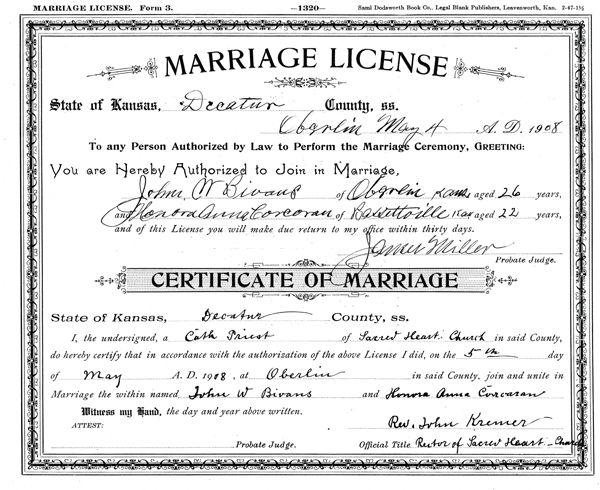 MARRIAGE LICENSE. Form 3. —1320— Saml Dodsworth Book Co., Legal Blank Publishers, Leavenworth, Kan. 2-47-15½
MARRIAGE LICENSE
State of Kansas, Decatur County, ss.
Oberlin May 4 A. D. 1908
To any Person Authorized by Law to Perform the Marriage Ceremony, GREETING:
You are Hereby Authorized to Join in Marriage,
John W Bivans of Oberlin Kans aged 26 years,
and Honora Anna Corcoran of Kan aged 22 years,
and of this License you will make due return to my office within thirty days.
James Miller
Probate Judge.
CERTIFICATE OF MARRIAGE
State of Kansas, Decatur County, ss.
I, the undersigned, a Cath Priest of Sacred Heart Church in said County,
do hereby certify that in accordance with the authorization of the above License I did, on the 5th day
of May A. D. 1908, at Oberlin in said County, join and unite in
Marriage the within named John W Bivans and Honora Anna Corcoran
Witness my Hand, the day and year above written.
ATTEST: Rev. John Kremer
Probate Judge. Official Title Rector of Sacred Heart - Church